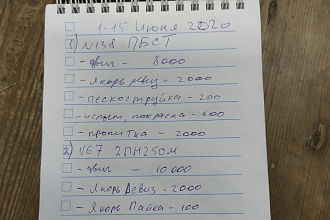 1-15 Июня 2020
1) N138 ПБСТ
- двиг - 8000
- Якорь ревиз - 2000
- пескоструйка - 200
- испыт, покраска - 600
- пропитка - 2000
2) N67 2ПН250М
- двиг - 10 000
- Якорь Ревиз - 2000
- Якорь Пайка - 100